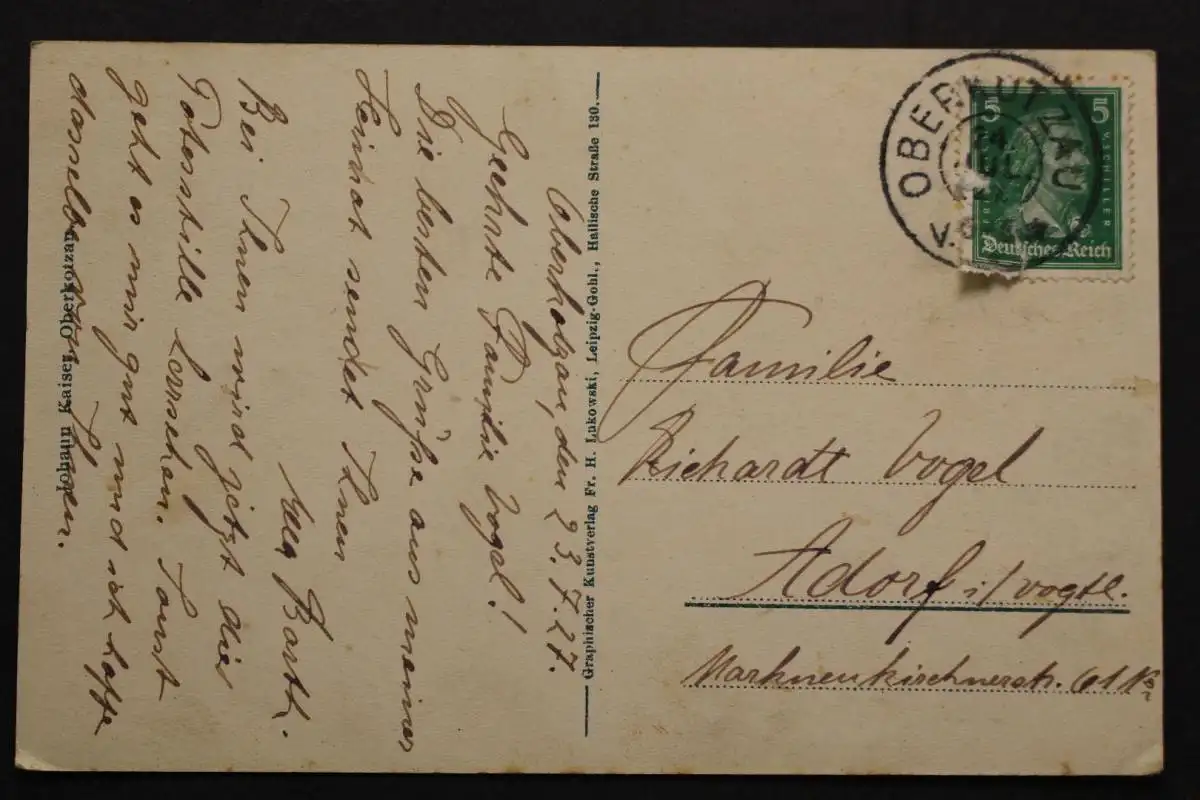 Oberkotzau, den 23.7.27.
Geehrte Familie Vogel!
Die besten Grüße aus meiner
Heimat sendet Ihnen
Ella Barth.
Bei Ihnen wird jetzt die
Totenstille herrschen. Sonst
geht es mir gut und ich hoffe
dasselbe von Ihnen.
Johann Kaiser, Oberkotzau.
Graphischer Kunstverlag Fr. H. Lukowski, Leipzig-Gohl., Hallische Straße 130.
OBERKOTZAU
24.
JUL.
5 5
V. SCHILLER
Deutsches Reich
Familie
Richardt Vogel
Adorf i/Vogtl.
Markneukirchnerstr. 61